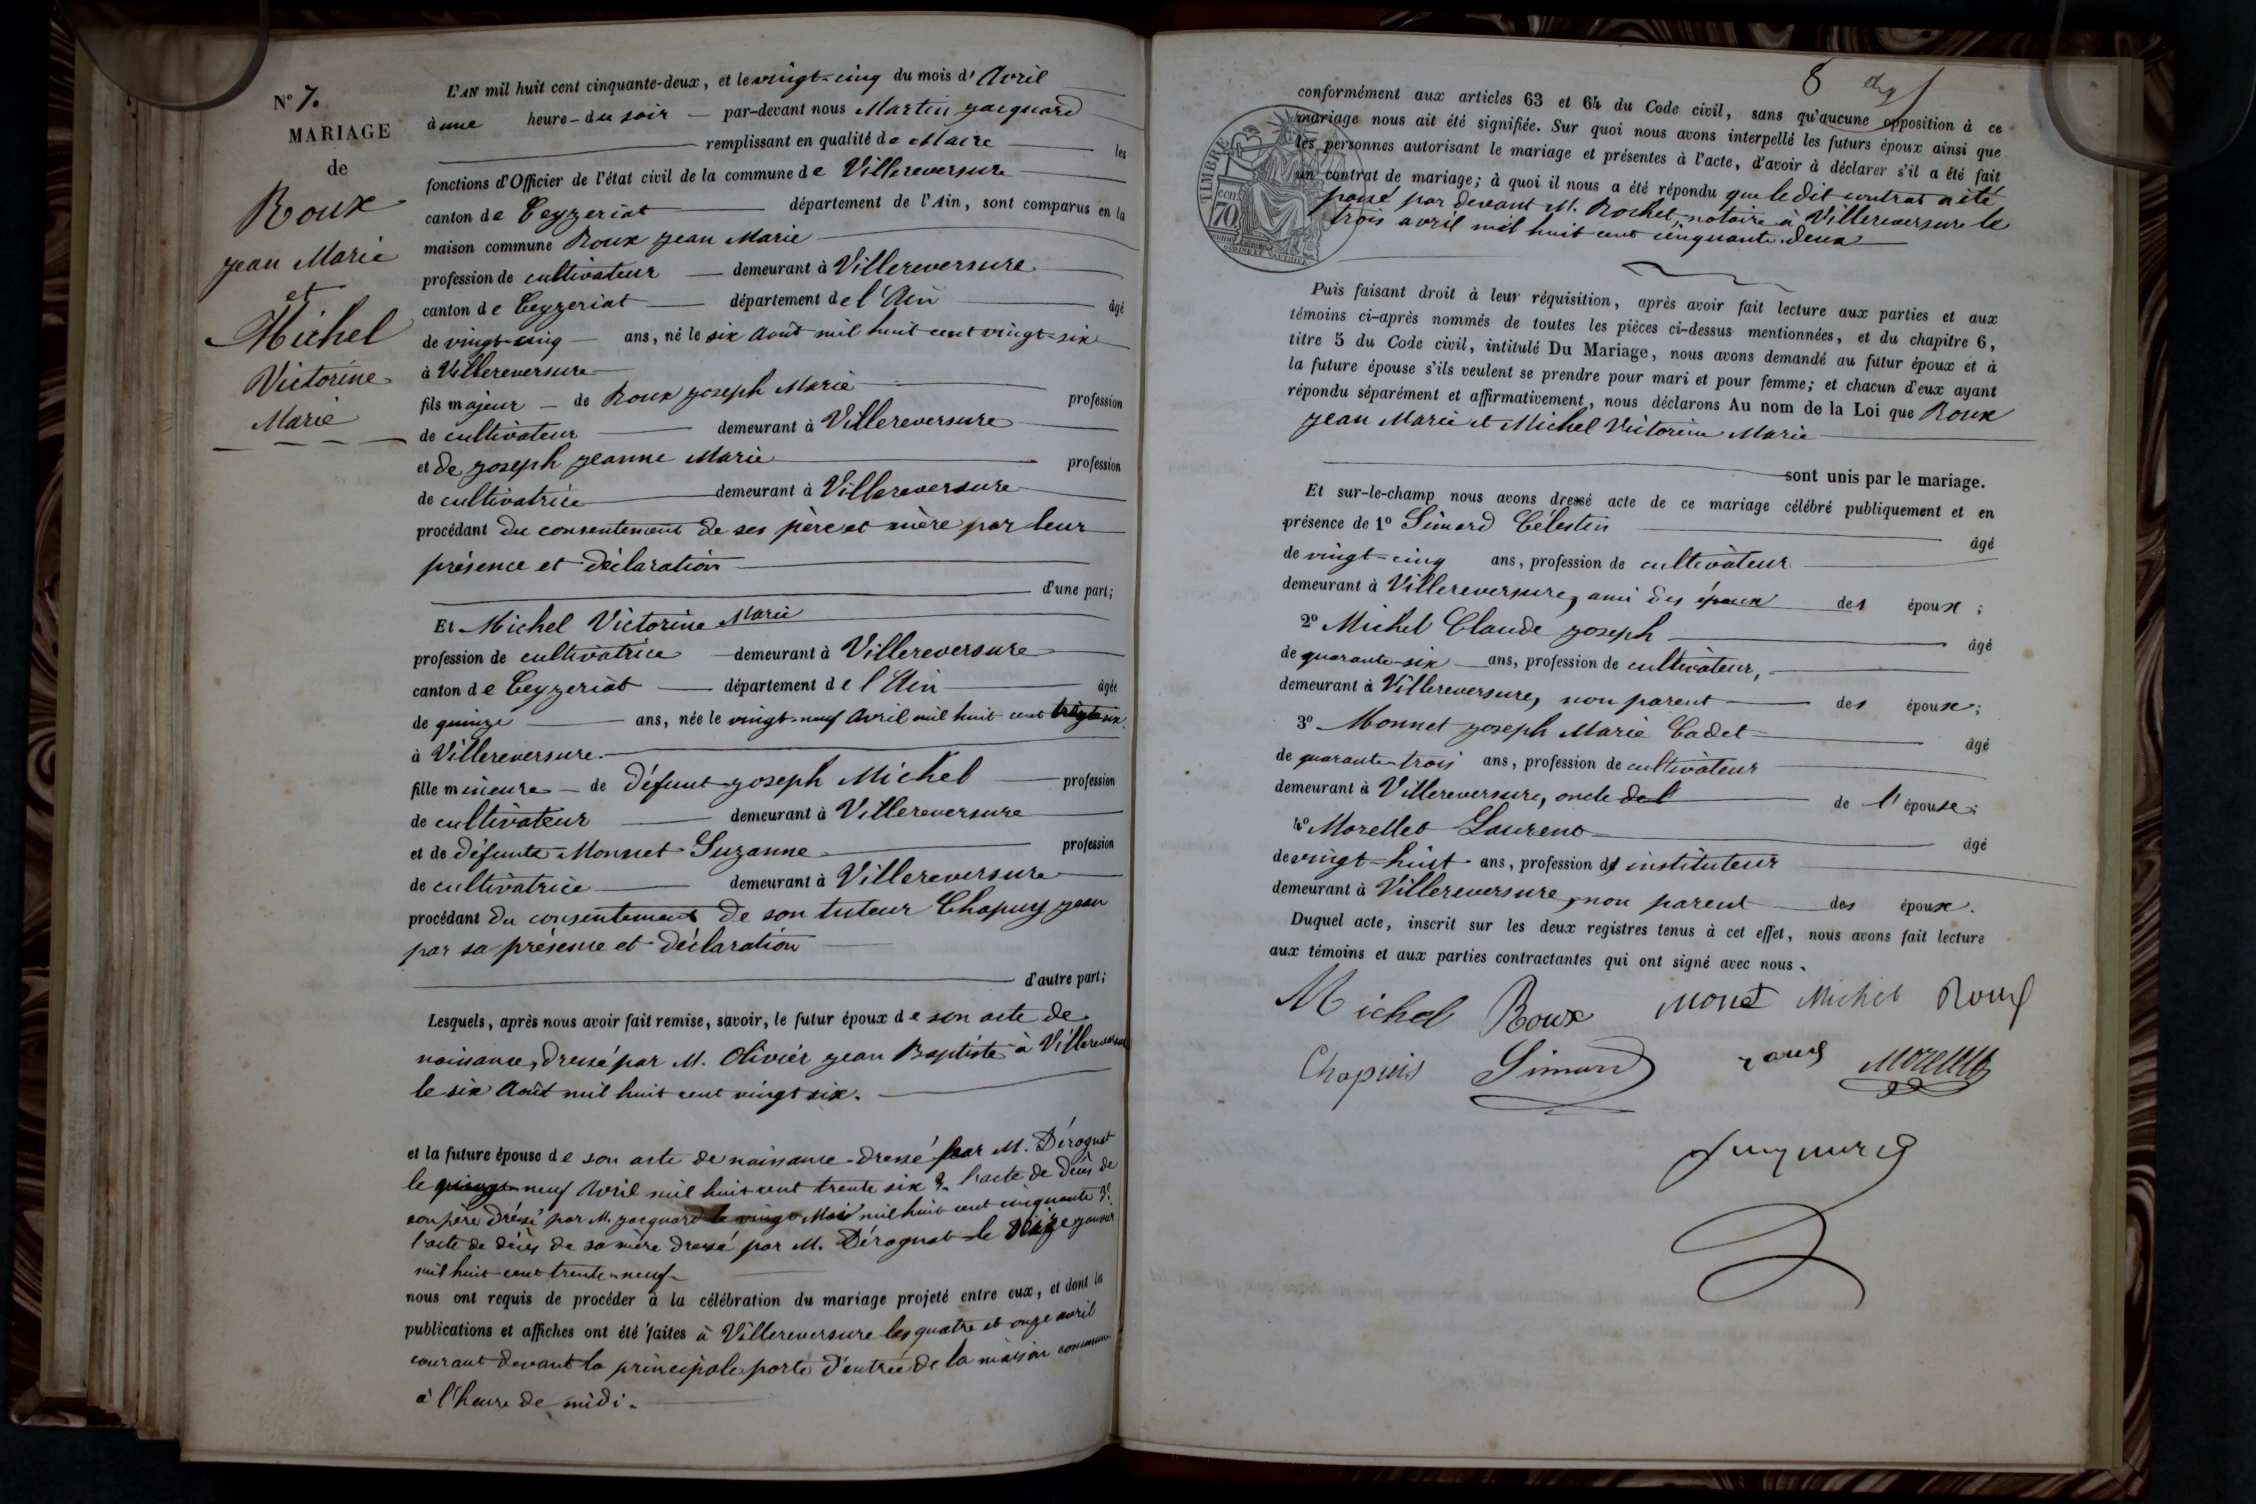 N° 7.
MARIAGE
de
Roux
Jean Marie
et
Michel
Victorine
Marie
L'AN mil huit cent cinquante-deux, et le vingt-cinq du mois d'Avril
à une heure du soir par-devant nous Martin Jacquard
remplissant en qualité de Maire les
fonctions d'Officier de l'état civil de la commune de Villereversure
canton de Ceyzeriat département de l'Ain, sont comparus en la
maison commune Roux Jean Marie
profession de cultivateur demeurant à Villereversure
canton de Ceyzeriat département de l'Ain âgé
de vingt-cinq ans, né le six Août mil huit cent vingt-six
à Villereversure
fils majeur de Roux Joseph Marie profession
de cultivateur demeurant à Villereversure
et de Joseph Jeanne Marie profession
de cultivatrice demeurant à Villereversure
procédant du consentement de ses père et mère par leur
présence et déclaration
d'une part;
Et Michel Victorine Marie
profession de cultivatrice demeurant à Villereversure
canton de Ceyzeriat département de l'Ain âgée
de quinze ans, née le vingt-neuf Avril mil huit cent trente six
à Villereversure
fille mineure de défunt Joseph Michel profession
de cultivateur demeurant à Villereversure
et de défunte Monnet Suzanne profession
de cultivatrice demeurant à Villereversure
procédant du consentement de son tuteur Chapuy Jean
par sa présence et déclaration
d'autre part;
Lesquels, après nous avoir fait remise, savoir, le futur époux de son acte de
naissance, dressé par M. Olivier Jean Baptiste à Villereversure
le six Août mil huit cent vingt six.
et la future épouse de son acte de naissance dressé par M. Dérognat
le neuf Avril mil huit cent trente six 2° l'acte de décès de
son père dréssé par M. Jacquard le vingt Mai mil huit cent cinquante 3°
l'acte de décès de sa mère dressé par M. Dérognat le seize janvier
mil huit cent trente-neuf
nous ont requis de procéder à la célébration du mariage projeté entre eux, et dont les
publications et affiches ont été faites à Villereversure les quatre et onze avril
courant devant la principale porte d'entrée de la maison commune
à l'heure de midi.
8
conformément aux articles 63 et 64 du Code civil, sans qu'aucune opposition à ce
mariage nous ait été signifiée. Sur quoi nous avons interpellé les futurs époux ainsi que
les personnes autorisant le mariage et présentes à l'acte, d'avoir à déclarer s'il a été fait
un contrat de mariage; à quoi il nous a été répondu que le dit contrat a été
passé par devant M. Rochet, notaire à Villereversure le
trois avril mil huit cent cinquante-deux
TIMBRE
70
Puis faisant droit à leur réquisition, après avoir fait lecture aux parties et aux
témoins ci-après nommés de toutes les pièces ci-dessus mentionnées, et du chapitre 6,
titre 5 du Code civil, intitulé Du Mariage, nous avons demandé au futur époux et à
la future épouse s'ils veulent se prendre pour mari et pour femme; et chacun d'eux ayant
répondu séparément et affirmativement, nous déclarons Au nom de la Loi que Roux
Jean Marie et Michel Victorine Marie
sont unis par le mariage.
Et sur-le-champ nous avons dressé acte de ce mariage célébré publiquement et en
présence de 1° Simard Célestin âgé
de vingt-cinq ans, profession de cultivateur
demeurant à Villereversure, ami des époux des époux;
2° Michel Claude Joseph âgé
de quarante-six ans, profession de cultivateur,
demeurant à Villereversure, non parent des époux;
3° Monnet Joseph Marie Cadet âgé
de quarante-trois ans, profession de cultivateur
demeurant à Villereversure, oncle de l' de l'épouse;
4° Morellet Laurent âgé
de vingt-huit ans, profession de instituteur
demeurant à Villereversure, non parent des époux.
Duquel acte, inscrit sur les deux registres tenus à cet effet, nous avons fait lecture
aux témoins et aux parties contractantes qui ont signé avec nous.
Michel Roux Monet Michel Roux
Chapuis Simard Morellet
Jacquard